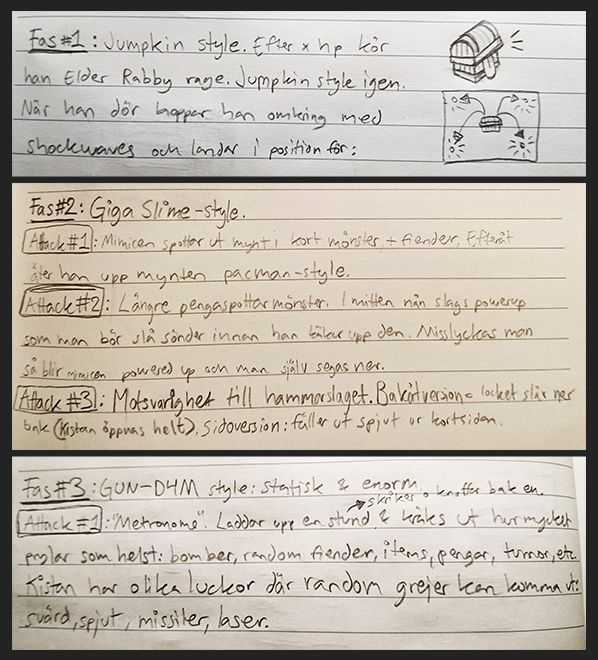 Fas #1: Jumpkin style. Efter x hp kör
han Elder Rabby rage. Jumpkin style igen.
När han dör hoppar han omkring med
shockwaves och landar i position för:
Fas#2: Giga Slime-style.
Attack #1: Mimicen spottar ut mynt i kort mönster, + fiender. Efteråt
äter han upp mynten pacman-style.
Attack #2: Längre pengaspottarmönster. I mitten nån slags powerup
som man bör slå sönder innan han käkar upp den. Misslyckas man
så blir mimicen powered up och man själv segas ner.
Attack #3: Motsvarighet till hammarslaget. Bakåtversion = locket slår ner
bak (kistan öppnas helt). Sidoversion: fäller ut spjut ur kortsidan.
Fas #3: GUN-D4M style: statisk & enorm.
skriker & knuffar bak en.
Attack #1: "Metronome". Laddar upp en stund & kräks ut hur mycket
prylar som helst: bomber, random fiender, items, pengar, turrior, etc.
Kistan har olika luckor där random grejer kan komma ut:
svärd, spjut, missiler, laser.